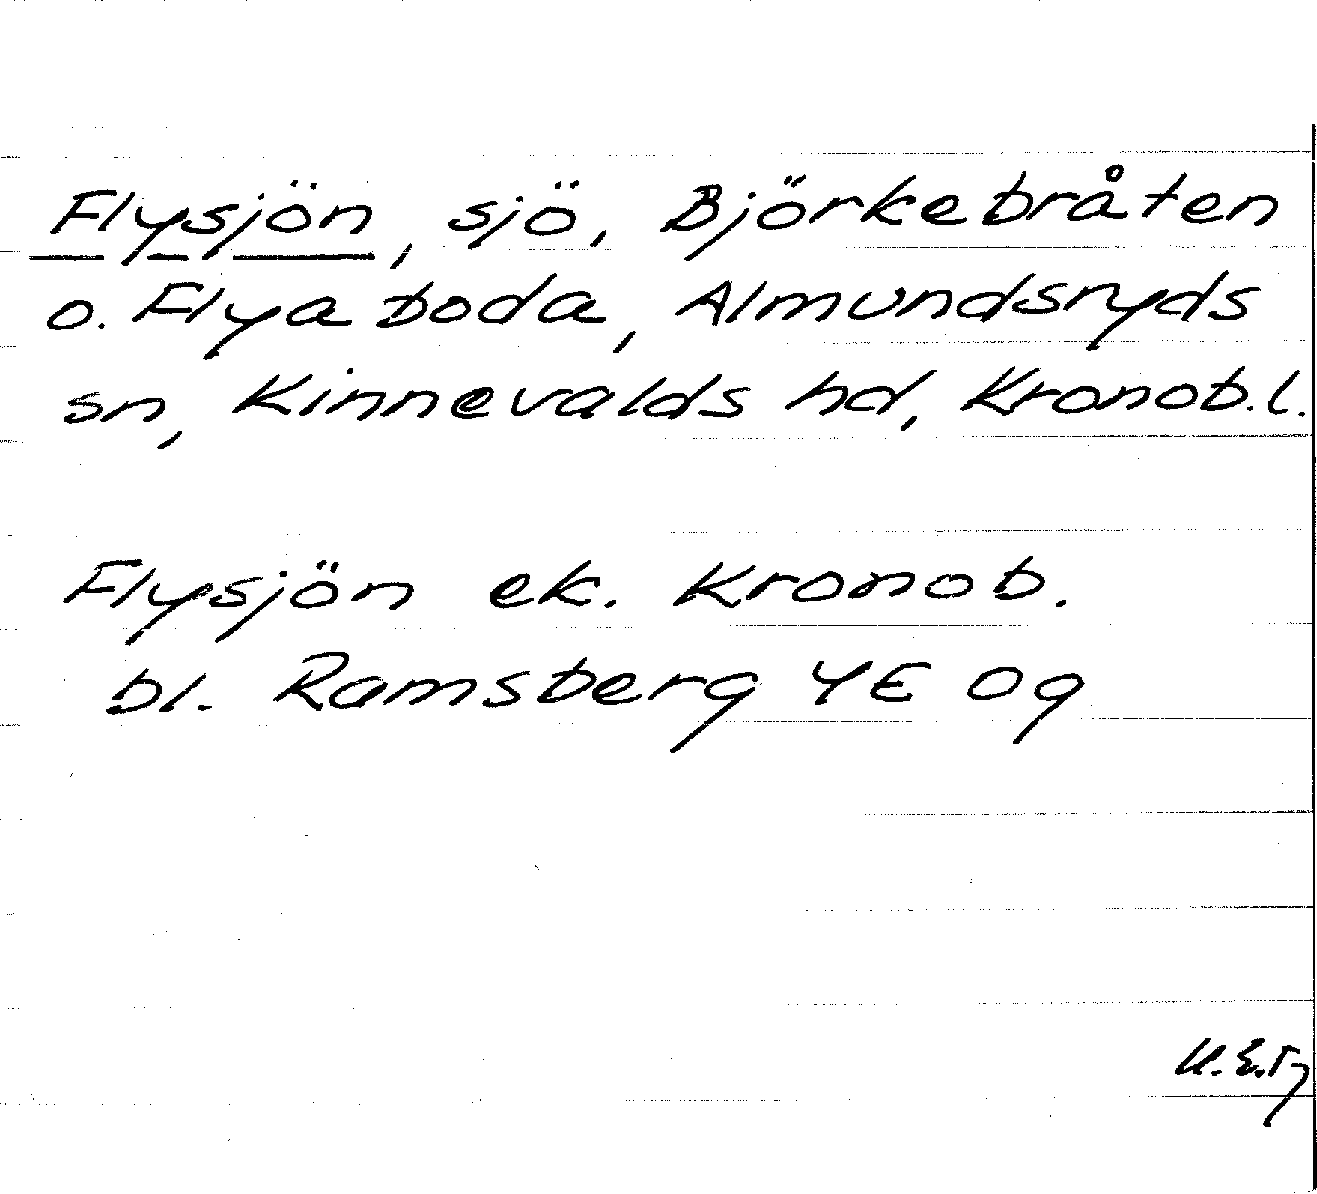 Flysjön, sjö, Björkebråten
o. Flyaboda, Almundsryds
sn, Kinnevalds hd, Kronob.l.
Flysjön ek. Kronob.
bl. Ramsberg 4E 0g